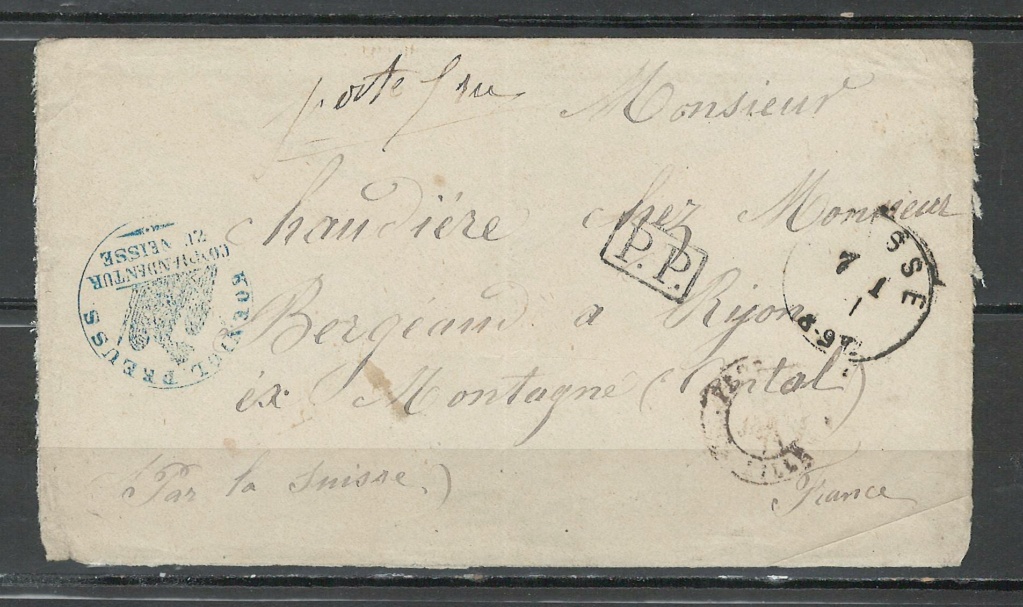 porte
Monsieur
chaudiére chez Monsieur
Bergéaud a Rijom
éx Montagne (Cantal)
(Par la Suisse)
France
P.P.
KOENIGL. PREUSS.
COMMANDENTUR
ZU NEISSE
SSE
7 1
6-8